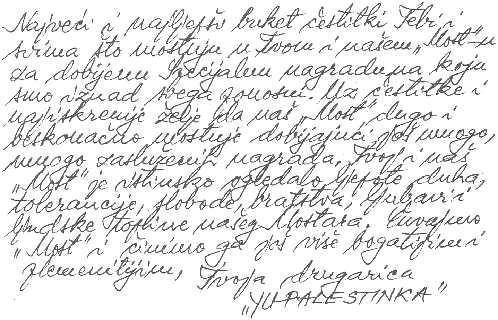 Najveći i najljepši buket čestitki Tebi i
svima što mostuju u Tvom i našem „Most"-u
za dobijenu Specijalnu nagradu na koju
smo iznad svega ponosni. Uz čestitke i
najiskrenije želje da naš „Most" dugo i
beskonačno mostuje dobijajući još mnogo,
mnogo zasluženih nagrada, Tvoj i naš
„Most" je istinsko ogledalo ljepote, duha,
tolerancije, slobode, bratstva, ljubavi i
ljudske topline našeg Mostara. Čuvajmo
„Most" i činimo ga još više bogatijim i
plemenitijim,
Tvoja drugarica
„YU PALESTINKA"